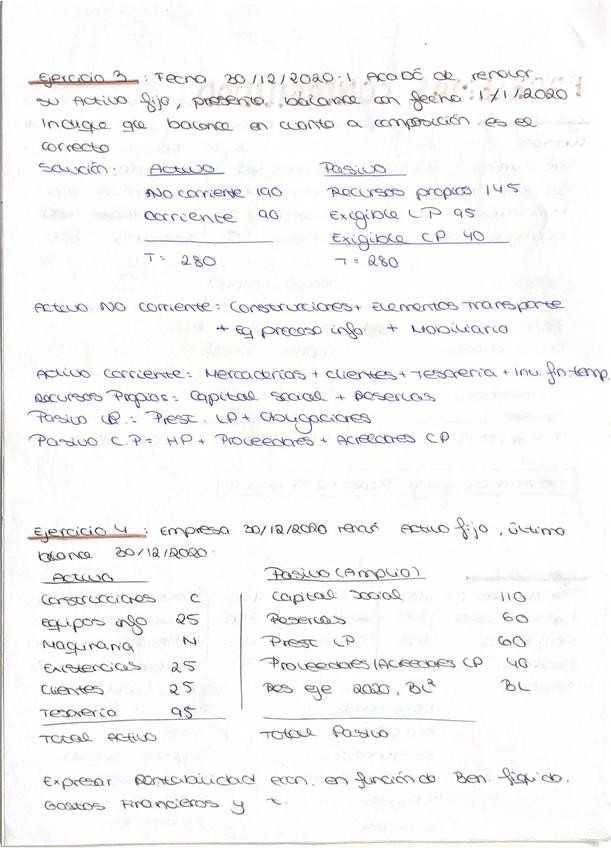 Ejercicio 3 : Fecha 30/12/2020. Acabó de renovar
su Activo fijo, presenta balance con fecha 1/1/2020
Indique que balance en cuanto a composición es el
correcto
Solución: Activo Pasivo
No corriente 190 Recursos propios 145
Corriente 90 Exigible LP 95
Exigible CP 40
T = 280 T = 280
Activo No corriente = Construcciones + Elementos Transporte
+ Eq proceso info + Mobiliario
Activo corriente = Mercaderías + clientes + Tesorería + Inv. fin. temp.
Recursos Propios = Capital Social + Reservas
Pasivo LP. = Prest. LP + Obligaciones
Pasivo C.P = HP + Proveedores + Acreedores CP
Ejercicio 4 : Empresa 30/12/2020 Activo fijo, último
balance 30/12/2020.
Activo Pasivo (Amplio)
Construcciones C Capital Social 110
Equipos info 25 Reservas 60
Maquinaria N Prest LP 60
Existencias 25 Proveedores/Acreedores CP 40
Clientes 25 Res eje 2020, BLº BL
Tesorería 95
Total Activo Total Pasivo
Expresar Rentabilidad econ. en función de Ben. líquido.
Gastos Financieros y t.